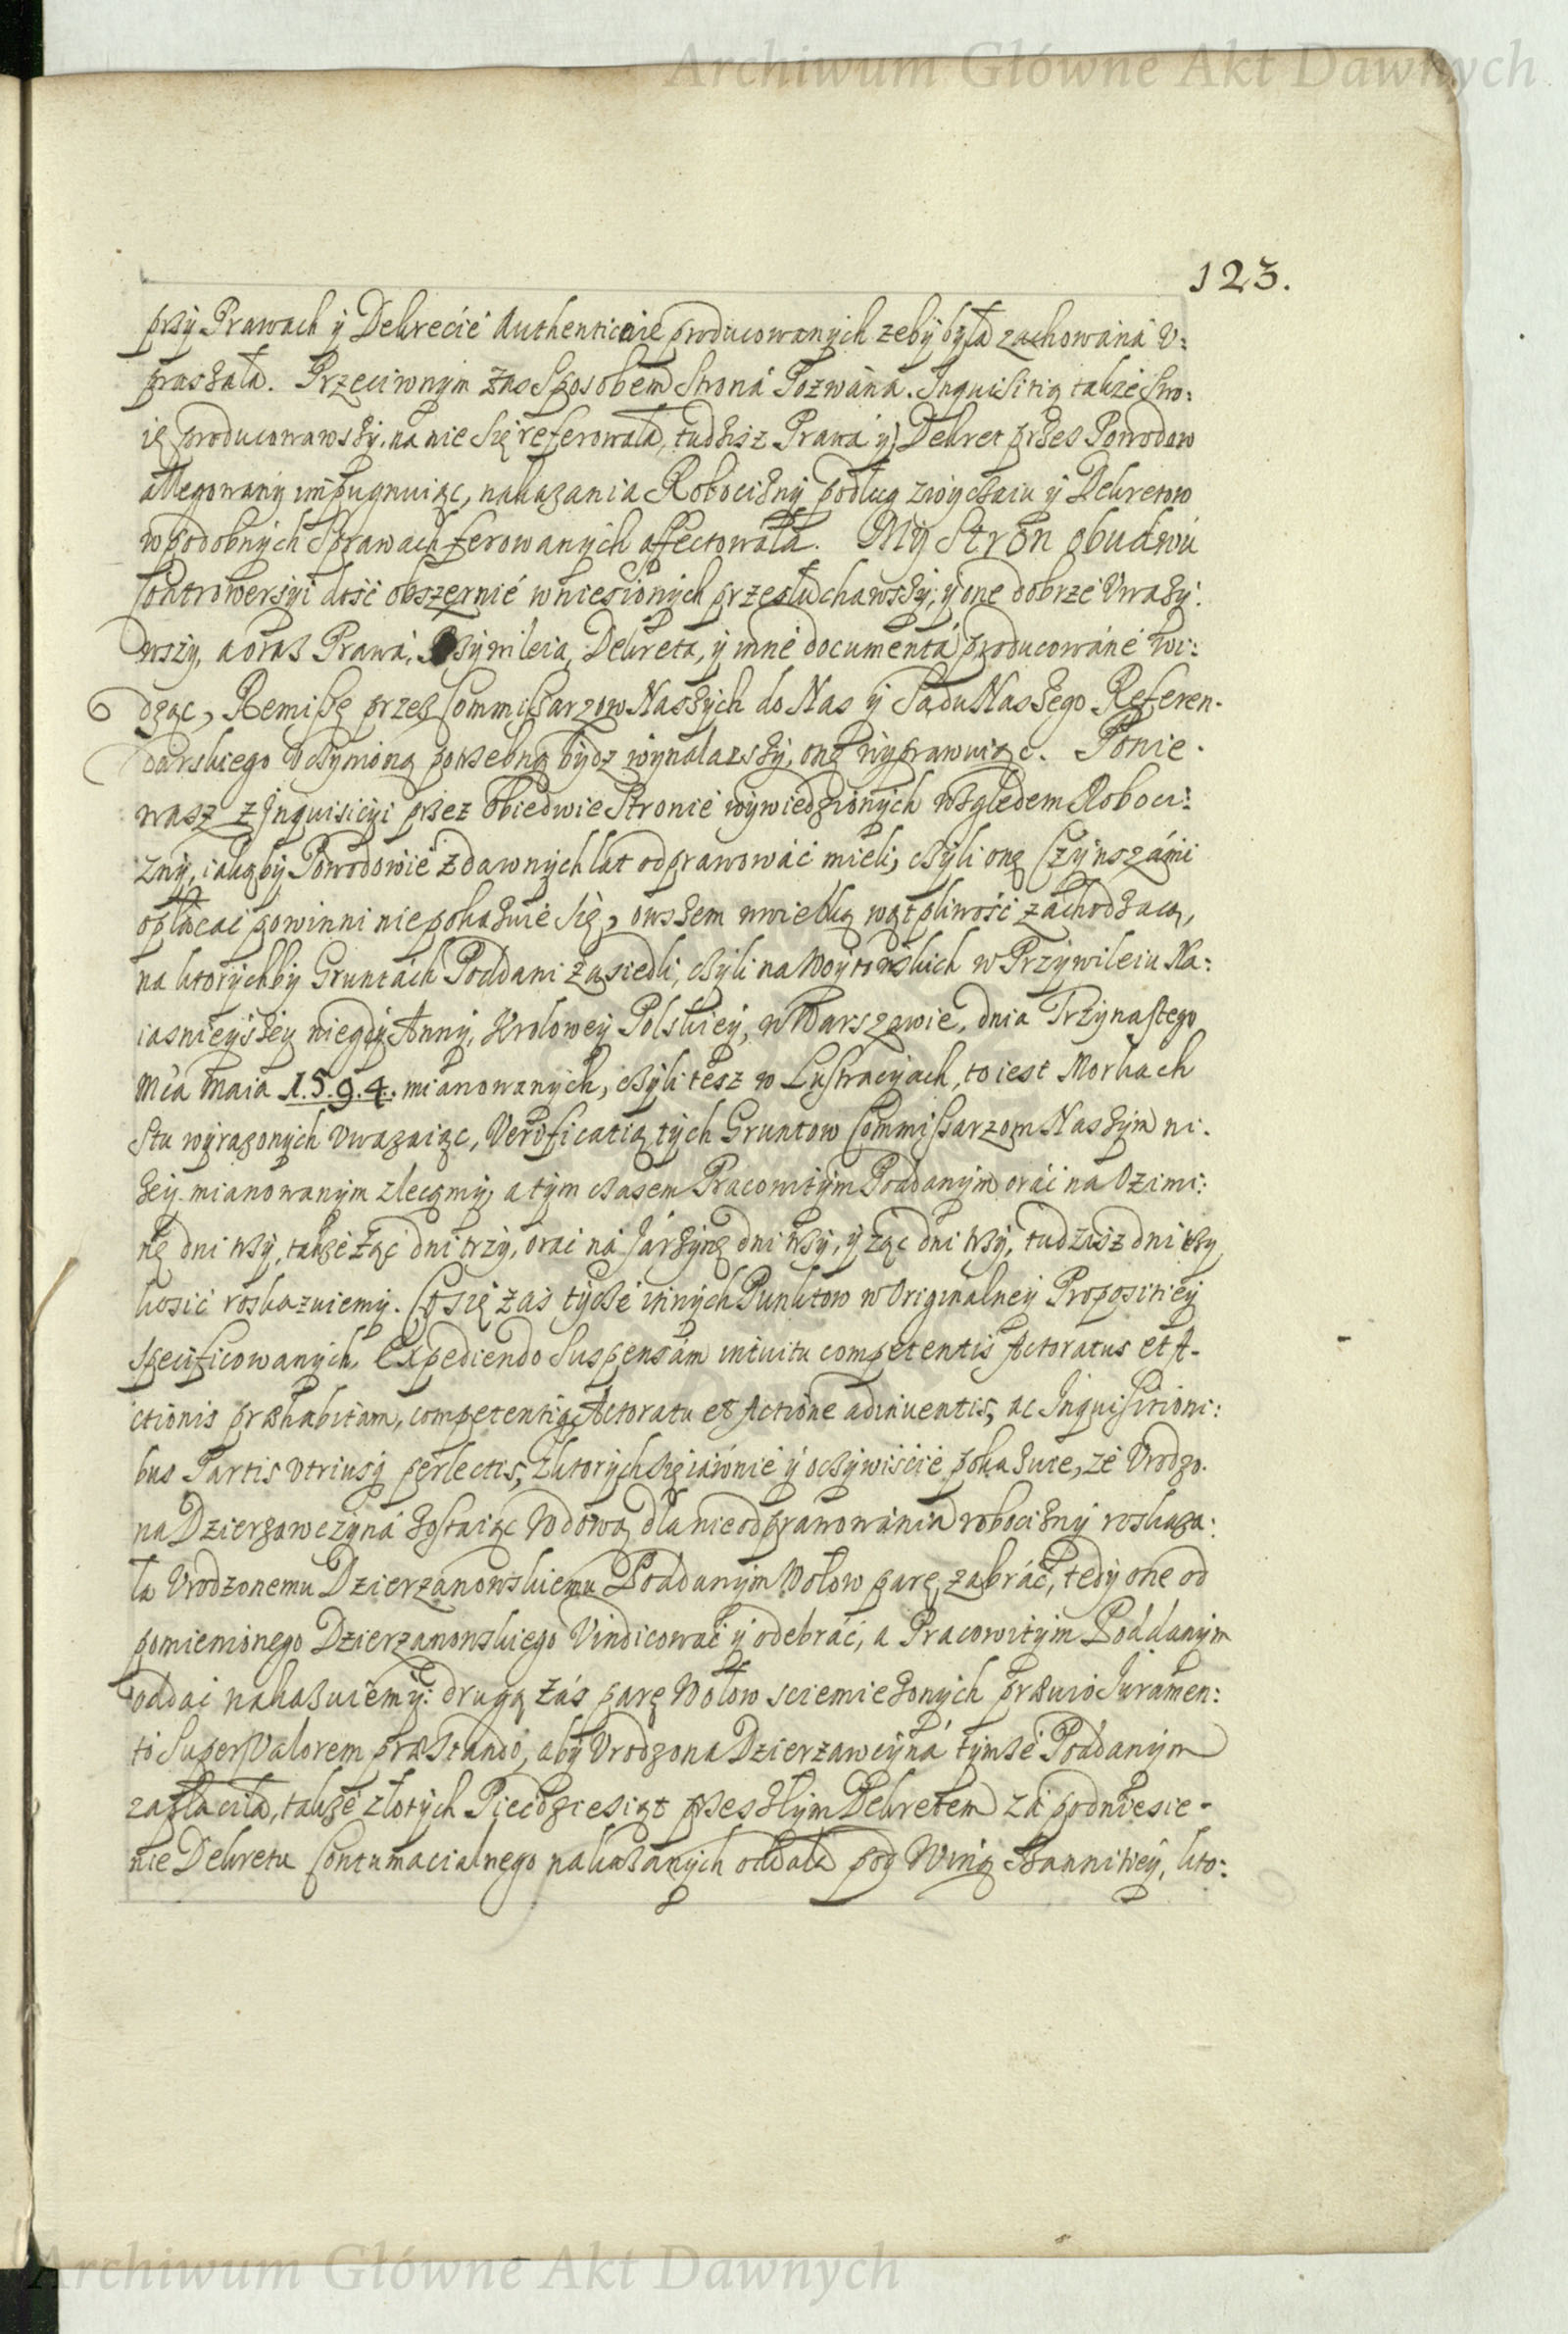 Archiwum Główne Akt Dawnych
123.
przÿ Prawach ÿ Dekrecie Authenticnie producowanÿch zebÿ bÿła zachowana v=
praszała. Przeciwnÿm zas Sposobem Strona Pozwana. Inquisitią takze Swo:
ię producowawszÿ, na nie się referowała, tudzisz Prawa ÿ Dekret przes Powodow
allegowanÿ impugnuiąc, nakazania Robociznÿ podług zwÿczaiu ÿ Dekretow
w podobnÿch Sprawach ferowanÿch affectowała. Mÿ Stron obudwu
Controwersÿi dość obszernie wniesionÿch przesłuchawszÿ, ÿ one dobrze Vwazÿ:
wszÿ, a oraz Prawa, Przÿwileia, Dekreta, ÿ inne documenta producowane wi:
dząc, Remissę przez Commissarzow Naszÿch do Nas ÿ Sądu Naszego Referen-
darskiego vczÿnioną potrzebną bÿdz wÿnalazszÿ, onę wÿprawuiąc. Ponie-
wasz z Inquisicÿi przez obiedwie Stronie wÿwiedzionÿch wzgledem Roboci:
znÿ, iakąbÿ Powodowie z dawnÿch lat odprawować mieli, czÿli onę Czÿnszámi
opłacać powinni nie pokazuie się, owszem wwielką wątpliwość zachodzącą,
na ktorÿchbÿ Gruntach Poddani zasiedli, czÿli na Woÿtowskich w Przÿwileiu Na:
iasnieÿszeÿ niegdÿ Annÿ, Kroloweÿ Polskieÿ, w Warszawie, dnia Trzÿnastego
Mca Maia 1.5.9.4. mianowanÿch, czÿli tesz w Lustracÿiach, to iest Morkach
Stu wÿrazonÿch vwazaiąc, Verificatią tÿch Gruntow Commissarzom Naszÿm ni-
zeÿ mianowanÿm zlecamÿ, a tÿm czasem Pracowitÿm Poddanÿm orać na Ozimi:
nę dni trzÿ, takze ząc dni trzÿ, orać na Jarzÿnę dni trzÿ, ÿ ząc dni trzÿ, tudzisz dni trzÿ
kosić roskazuiemÿ. Co się zas tÿcze innÿch Punktow w Originalneÿ Propositieÿ
specificowanÿch, Expediendo Suspensam intuitu competentis Actoratus et A-
ctionis præhabitam, competentią Actoratu et Actione adinventis, ac Inquisitioni:
bus Partis vtriusq perlectis, z ktorÿch się iáwnie ÿ oczÿwiście pokazuie, ze Vrodzo-
na Dzierzawczÿna zostaiąc Wdową dla nieodprawowánia robociznÿ roskaza:
ła Vrodzonemu Dzierzanowskiemu Poddanÿm Wołow parę zabrać, tedÿ one od
pomienionego Dzierzanowskiego Vindicować ÿ odebrac, a Pracowitÿm Poddanÿm
oddać nakazuiemÿ: drugą zás parę Wołow sciemiezonÿch prævio Iuramen:
to Super Valorem præstando, abÿ Vrodzona Dzierzawcÿna tÿmze Poddanÿm
zapłaciła, takze złotÿch Pięcdziesiąt przeszłÿm Dekretem za podniesie-
nie Dekretu Contumacialnego nakazanÿch oddała pod Winą Banniteÿ, kto:
Archiwum Główne Akt Dawnych